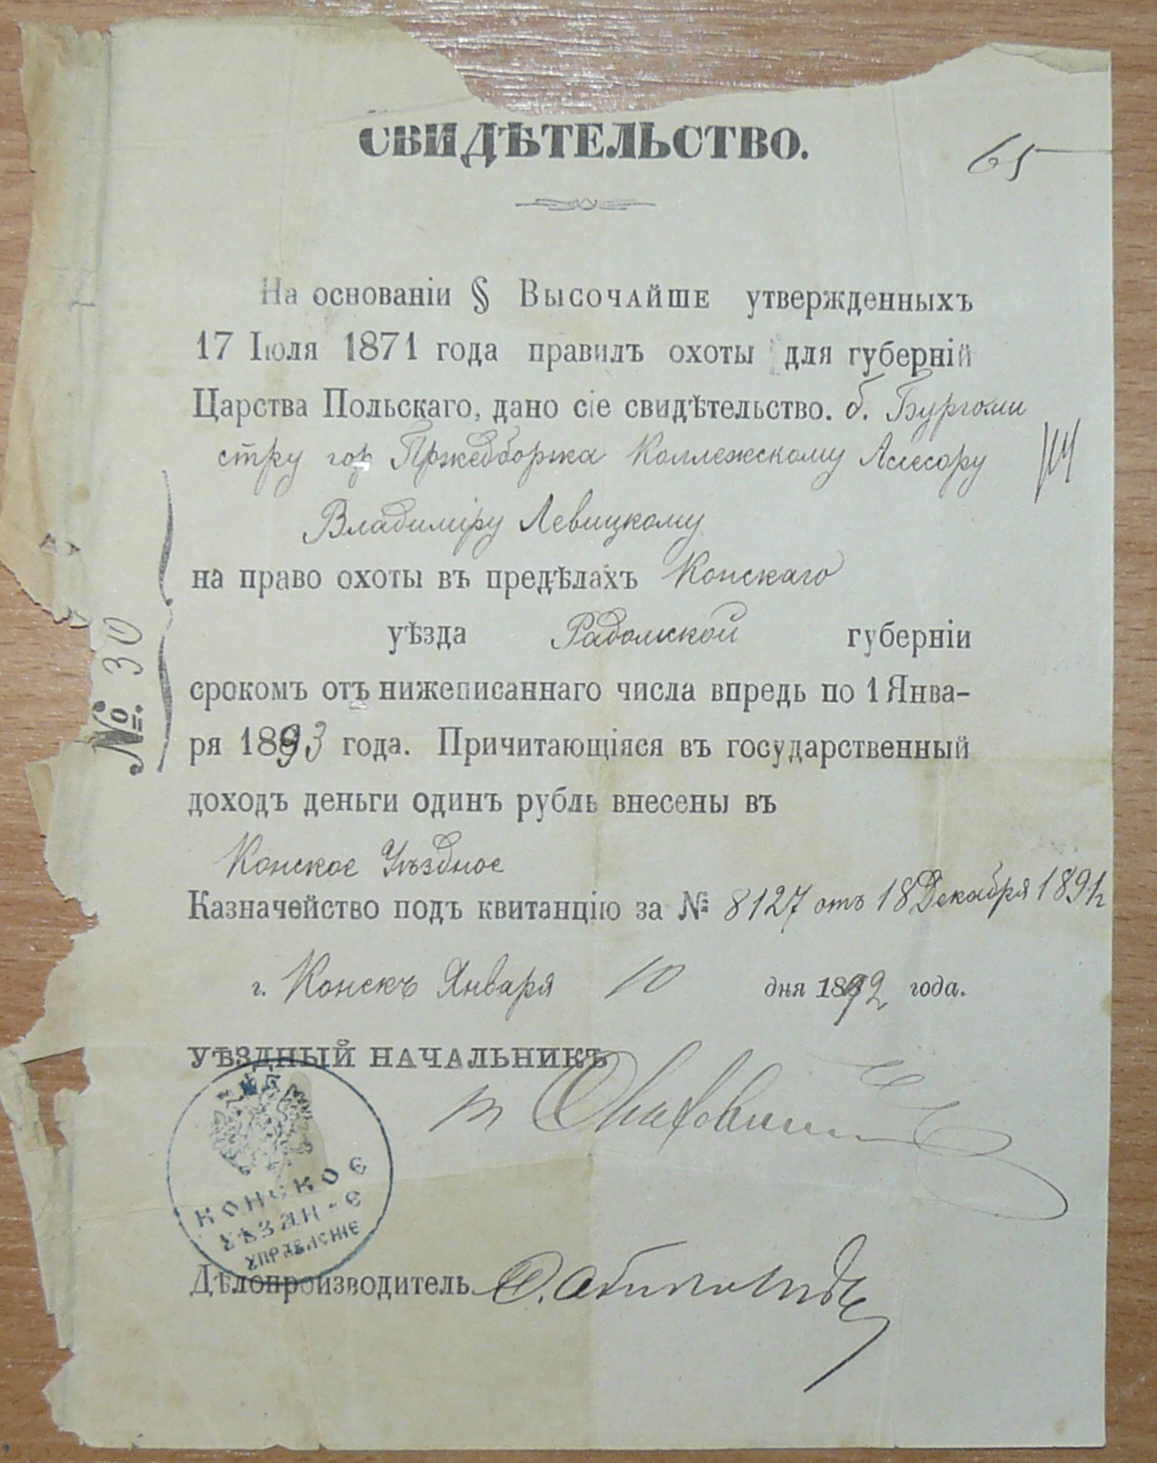 СВИДѢТЕЛЬСТВО.
65
На основаніи § Высочайше утвержденныхъ
17 Іюля 1871 года правилъ охоты для губерній
Царства Польскаго, дано сіе свидѣтельство. б. Бургоми
стру гор Пржедборжа Коллежскому Ассесору
Владиміру Левицкому
на право охоты въ предѣлахъ Конскаго
уѣзда Радомской губерніи
срокомъ отъ нижеписаннаго числа впредь по 1 Янва-
ря 1893 года. Причитающіяся въ государственный
доходъ деньги одинъ рубль внесены въ
Конское Уѣздное
Казначейство подъ квитанцію за № 8127 отъ 18 Декабря 1891 г.
г. Конскъ Января 10 дня 1892 года.
№ 30
УѢЗДНЫЙ НАЧАЛЬНИКЪ
КОНСКОЕ
УѢЗДН-Е
УПРАВЛЕНІЕ
Дѣлопроизводитель